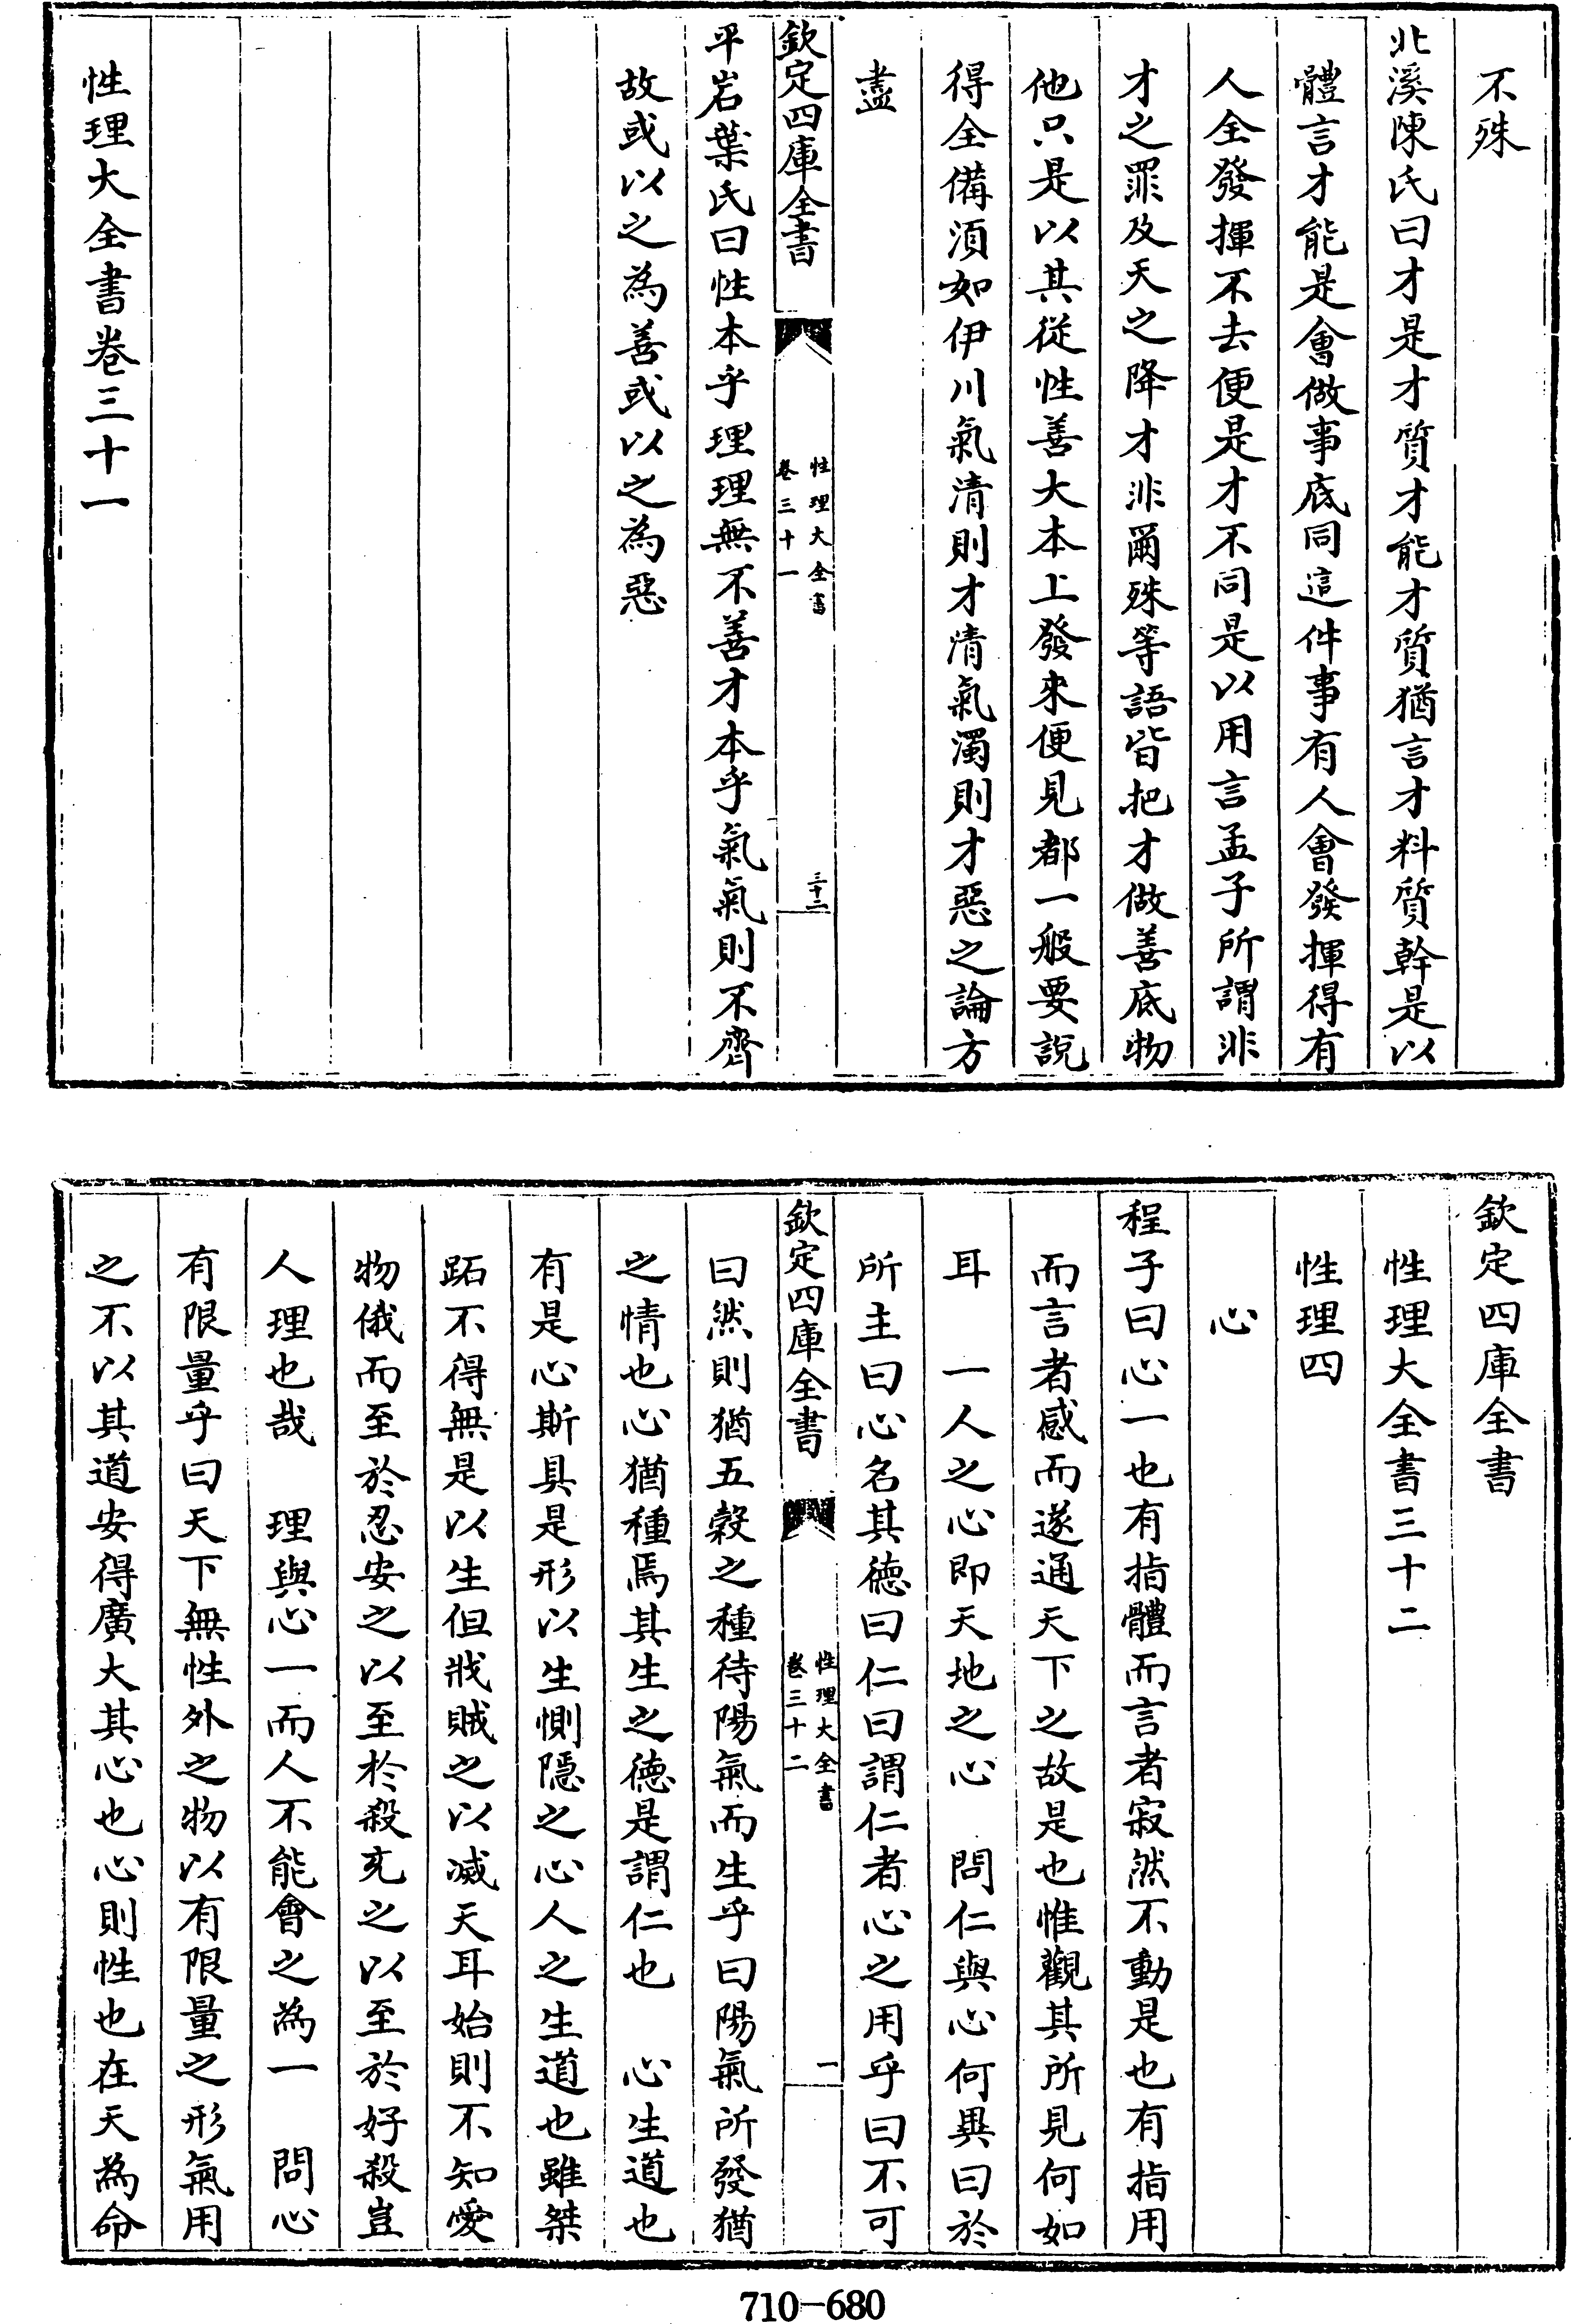 不殊
北溪陳氏曰才是才質才能才質猶言才料質幹是以
體言才能是會做事底同這件事有人會發揮得有
人全發揮不去便是才不同是以用言孟子所謂非
才之罪及天之降才非爾殊等語皆把才做善底物
他只是以其從性善大本上發來便見都一般要說
得全備須如伊川氣清則才清氣濁則才惡之論方
盡
欽定四庫全書
性理大全書
卷三十一
三十二
平岩葉氏曰性本乎理理無不善才本乎氣氣則不齊
故或以之為善或以之為惡
性理大全書卷三十一
欽定四庫全書
性理大全書三十二
性理四
心
程子曰心一也有指體而言者寂然不動是也有指用
而言者感而遂通天下之故是也惟觀其所見何如
耳　一人之心即天地之心　問仁與心何異曰於
所主曰心名其德曰仁曰謂仁者心之用乎曰不可
欽定四庫全書
性理大全書
卷三十二
一
曰然則猶五穀之種待陽氣而生乎曰陽氣所發猶
之情也心猶種焉其生之德是謂仁也　心生道也
有是心斯具是形以生惻隱之心人之生道也雖桀
跖不得無是以生但戕賊之以滅天耳始則不知愛
物俄而至於忍安之以至於殺充之以至於好殺豈
人理也哉　理與心一而人不能會之為一　問心
有限量乎曰天下無性外之物以有限量之形氣用
之不以其道安得廣大其心也心則性也在天為命
710-680